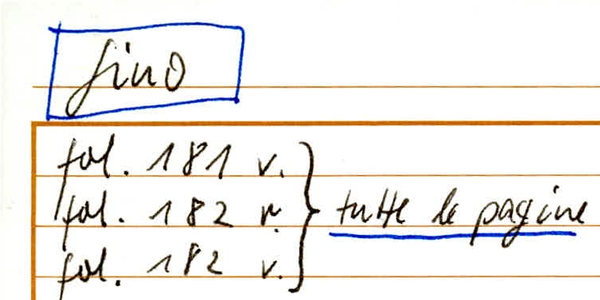 fino
fol. 181 v.
fol. 182 r. tutte le pagine
fol. 182 v.